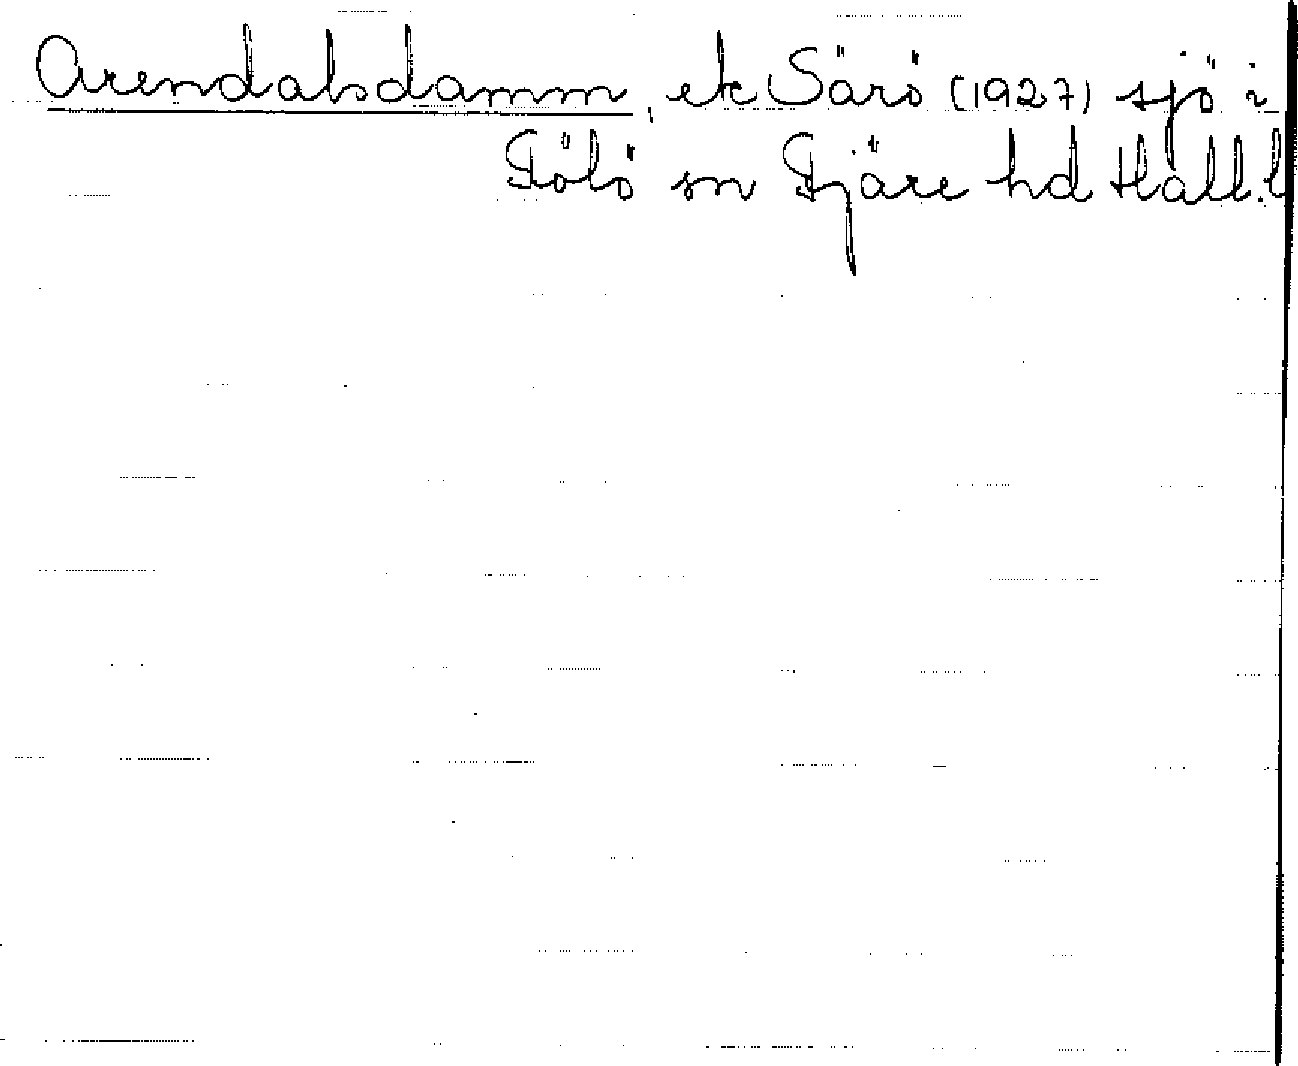 Arendalsdamm, ek Särö (1927) sjö i
Släp sn Fjäre hd Hall.l